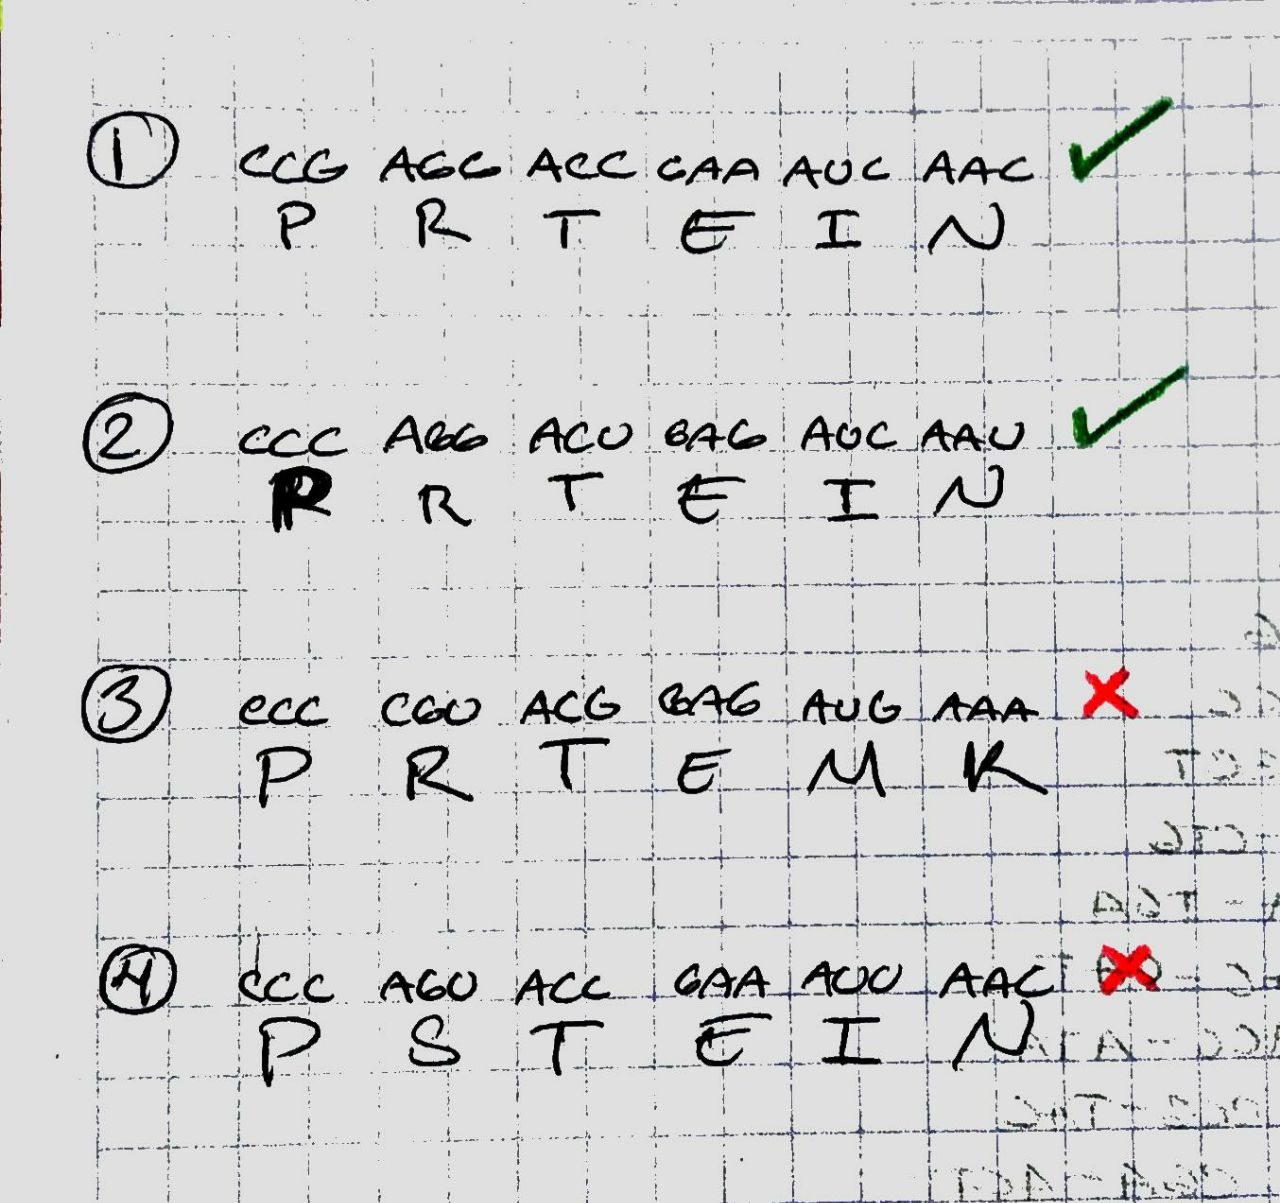 1 CCG AGG ACC GAA AUC AAC ✓
P R T E I N
2 CCC AGG ACU GAG AUC AAU ✓
P R T E I N
3 CCC CGU ACG GAG AUG AAA ×
P R T E M K
4 CCC AGU ACC GAA AUU AAC ×
P S T E I N